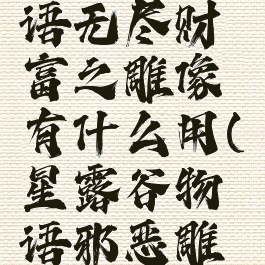 语无尽财
富之雕像
有什么用(
星露谷物
语邪恶雕